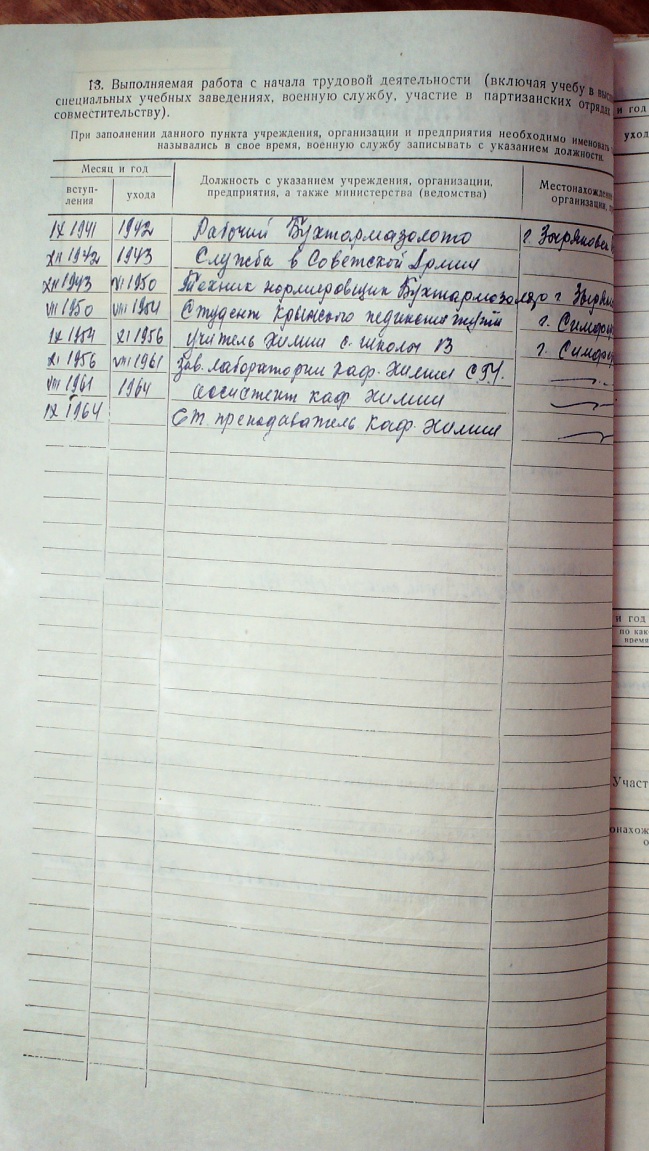 13. Выполняемая работа с начала трудовой деятельности (включая учебу в
специальных учебных заведениях, военную службу, участие в партизанских отрядах
совместительству).
При заполнении данного пункта учреждения, организации и предприятия необходимо именовать
назывались в свое время, военную службу записывать с указанием должности.
Месяц и год
вступ-
ления
ухода
Должность с указанием учреждения, организации,
предприятия, а также министерства (ведомства)
Местонахождение
организации,
IX 1941 1942 Рабочий Бухтармазолото г. Зыряновск
XII 1942 1943 Служба в Советской Армии
XII 1943 VII 1950 Техник нормировщик Бухтармазолото г. Зырян
VIII 1950 VIII 1954 Студент Крымского пединститута г. Симфер
IX 1954 XI 1956 учитель химии с. школы 13 г. Симфер
XI 1956 VIII 1961 Зав. лаборатории каф. химии
VIII 1961 1964 ассистент каф. химии
IX 1964 Ст. преподаватель каф. химии
и год
ухо
и год
по как
время
Участ
онахож
о